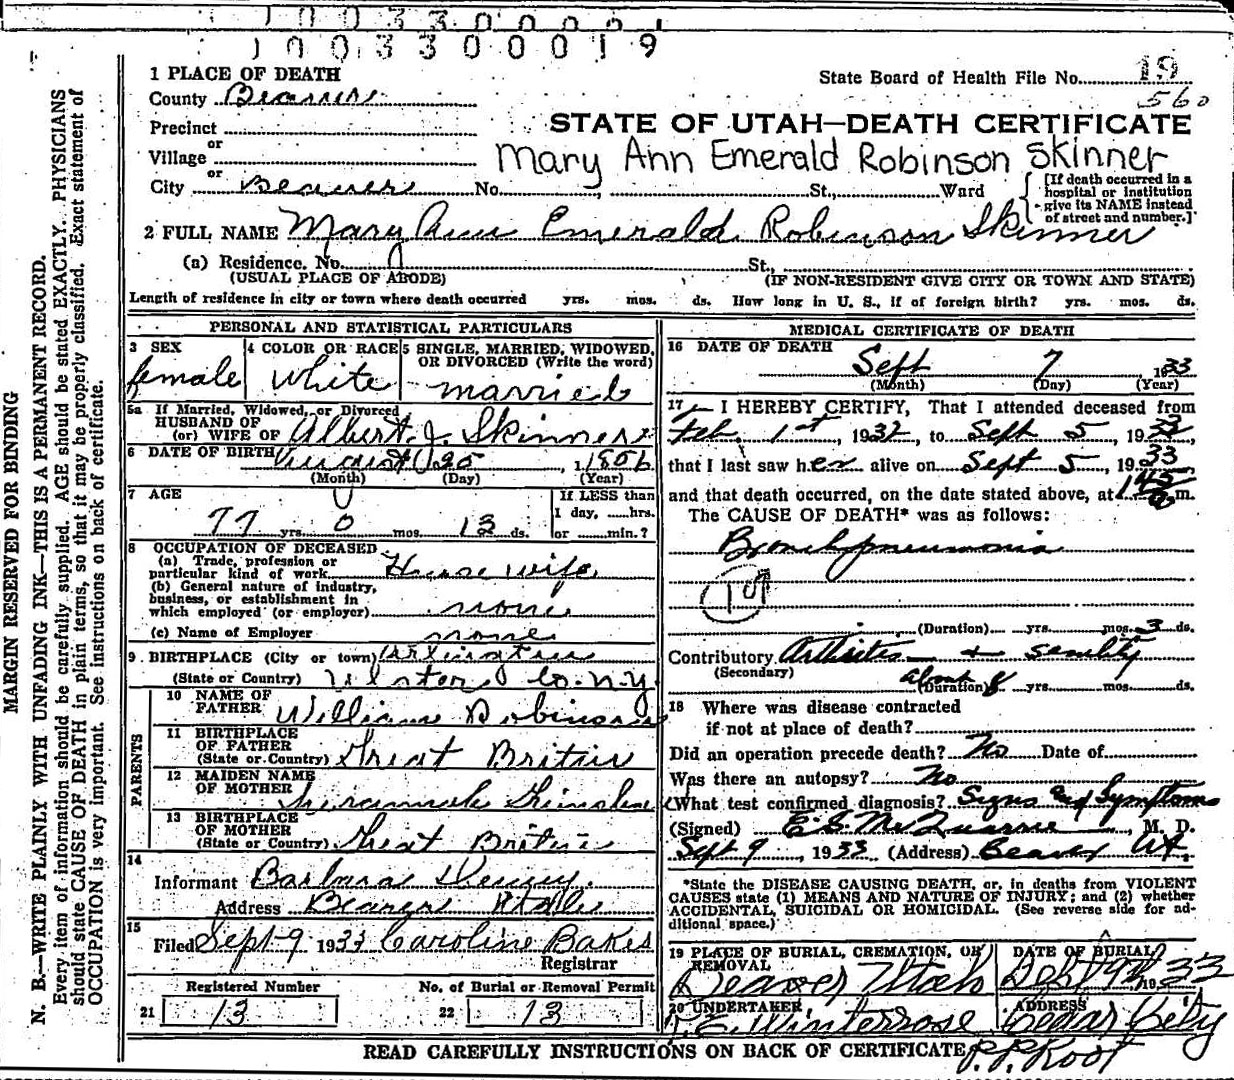 10033000019
1 PLACE OF DEATH
State Board of Health File No. 19
County Beaver
560
Precinct
STATE OF UTAH—DEATH CERTIFICATE
or
Village
Mary Ann Emerald Robinson Skinner
or
City Beaver No. St., Ward
[If death occurred in a
hospital or institution
give its NAME instead
of street and number.]
2 FULL NAME Mary Ann Emerald Robinson Skinner
(a) Residence. No. St.,
(USUAL PLACE OF ABODE) (IF NON-RESIDENT GIVE CITY OR TOWN AND STATE)
Length of residence in city or town where death occurred yrs. mos. ds. How long in U. S., if of foreign birth? yrs. mos. ds.
PERSONAL AND STATISTICAL PARTICULARS
3 SEX
female
4 COLOR OR RACE
White
5 SINGLE, MARRIED, WIDOWED,
OR DIVORCED (Write the word)
married
5a If Married, Widowed, or Divorced
HUSBAND OF
(or) WIFE OF Albert J. Skinner
6 DATE OF BIRTH August 25, 1856
(Month) (Day) (Year)
7 AGE
77 yrs. 0 mos. 13 ds.
If LESS than
1 day, hrs.
or min.?
8 OCCUPATION OF DECEASED
(a) Trade, profession or
particular kind of work Housewife
(b) General nature of industry,
business, or establishment in
which employed (or employer) none
(c) Name of Employer none
9 BIRTHPLACE (City or town)
(State or Country) Ulster Co. N.Y.
PARENTS
10 NAME OF
FATHER William Robinson
11 BIRTHPLACE
OF FATHER
(State or Country) Great Britain
12 MAIDEN NAME
OF MOTHER
13 BIRTHPLACE
OF MOTHER
(State or Country) Great Britain
14
Informant Barbara
Address Beaver Utah
15
Filed Sept 9 1933 Caroline Baker
Registrar
Registered Number
21 13
No. of Burial or Removal Permit
22 13
MEDICAL CERTIFICATE OF DEATH
16 DATE OF DEATH
Sept 7 1933
(Month) (Day) (Year)
17 I HEREBY CERTIFY, That I attended deceased from
Feb. 1st, 1932, to Sept 5, 1933,
that I last saw her alive on Sept 5, 1933
and that death occurred, on the date stated above, at m.
The CAUSE OF DEATH* was as follows:
Bronchopneumonia
(Duration) yrs. mos. 3 ds.
Contributory Arthritis + senility
(Secondary)
about
(Duration) 8 yrs. mos. ds.
18 Where was disease contracted
if not at place of death?
Did an operation precede death? No Date of
Was there an autopsy? No
What test confirmed diagnosis? Signs and Symptoms
(Signed) E. S. McQuarrie, M. D.
Sept 9, 1933 (Address) Beaver Ut.
*State the DISEASE CAUSING DEATH, or, in deaths from VIOLENT
CAUSES state (1) MEANS AND NATURE OF INJURY; and (2) whether
ACCIDENTAL, SUICIDAL OR HOMICIDAL. (See reverse side for ad-
ditional space.)
19 PLACE OF BURIAL, CREMATION, OR
REMOVAL
Beaver Utah
DATE OF BURIAL
Sept 9th 1933
20 UNDERTAKER
Winterrose
ADDRESS
Cedar City
READ CAREFULLY INSTRUCTIONS ON BACK OF CERTIFICATE
P.P. Root
MARGIN RESERVED FOR BINDING
N. B.—WRITE PLAINLY WITH UNFADING INK—THIS IS A PERMANENT RECORD.
Every item of information should be carefully supplied. AGE should be stated EXACTLY. PHYSICIANS
should state CAUSE OF DEATH in plain terms, so that it may be properly classified. Exact statement of
OCCUPATION is very important. See instructions on back of certificate.